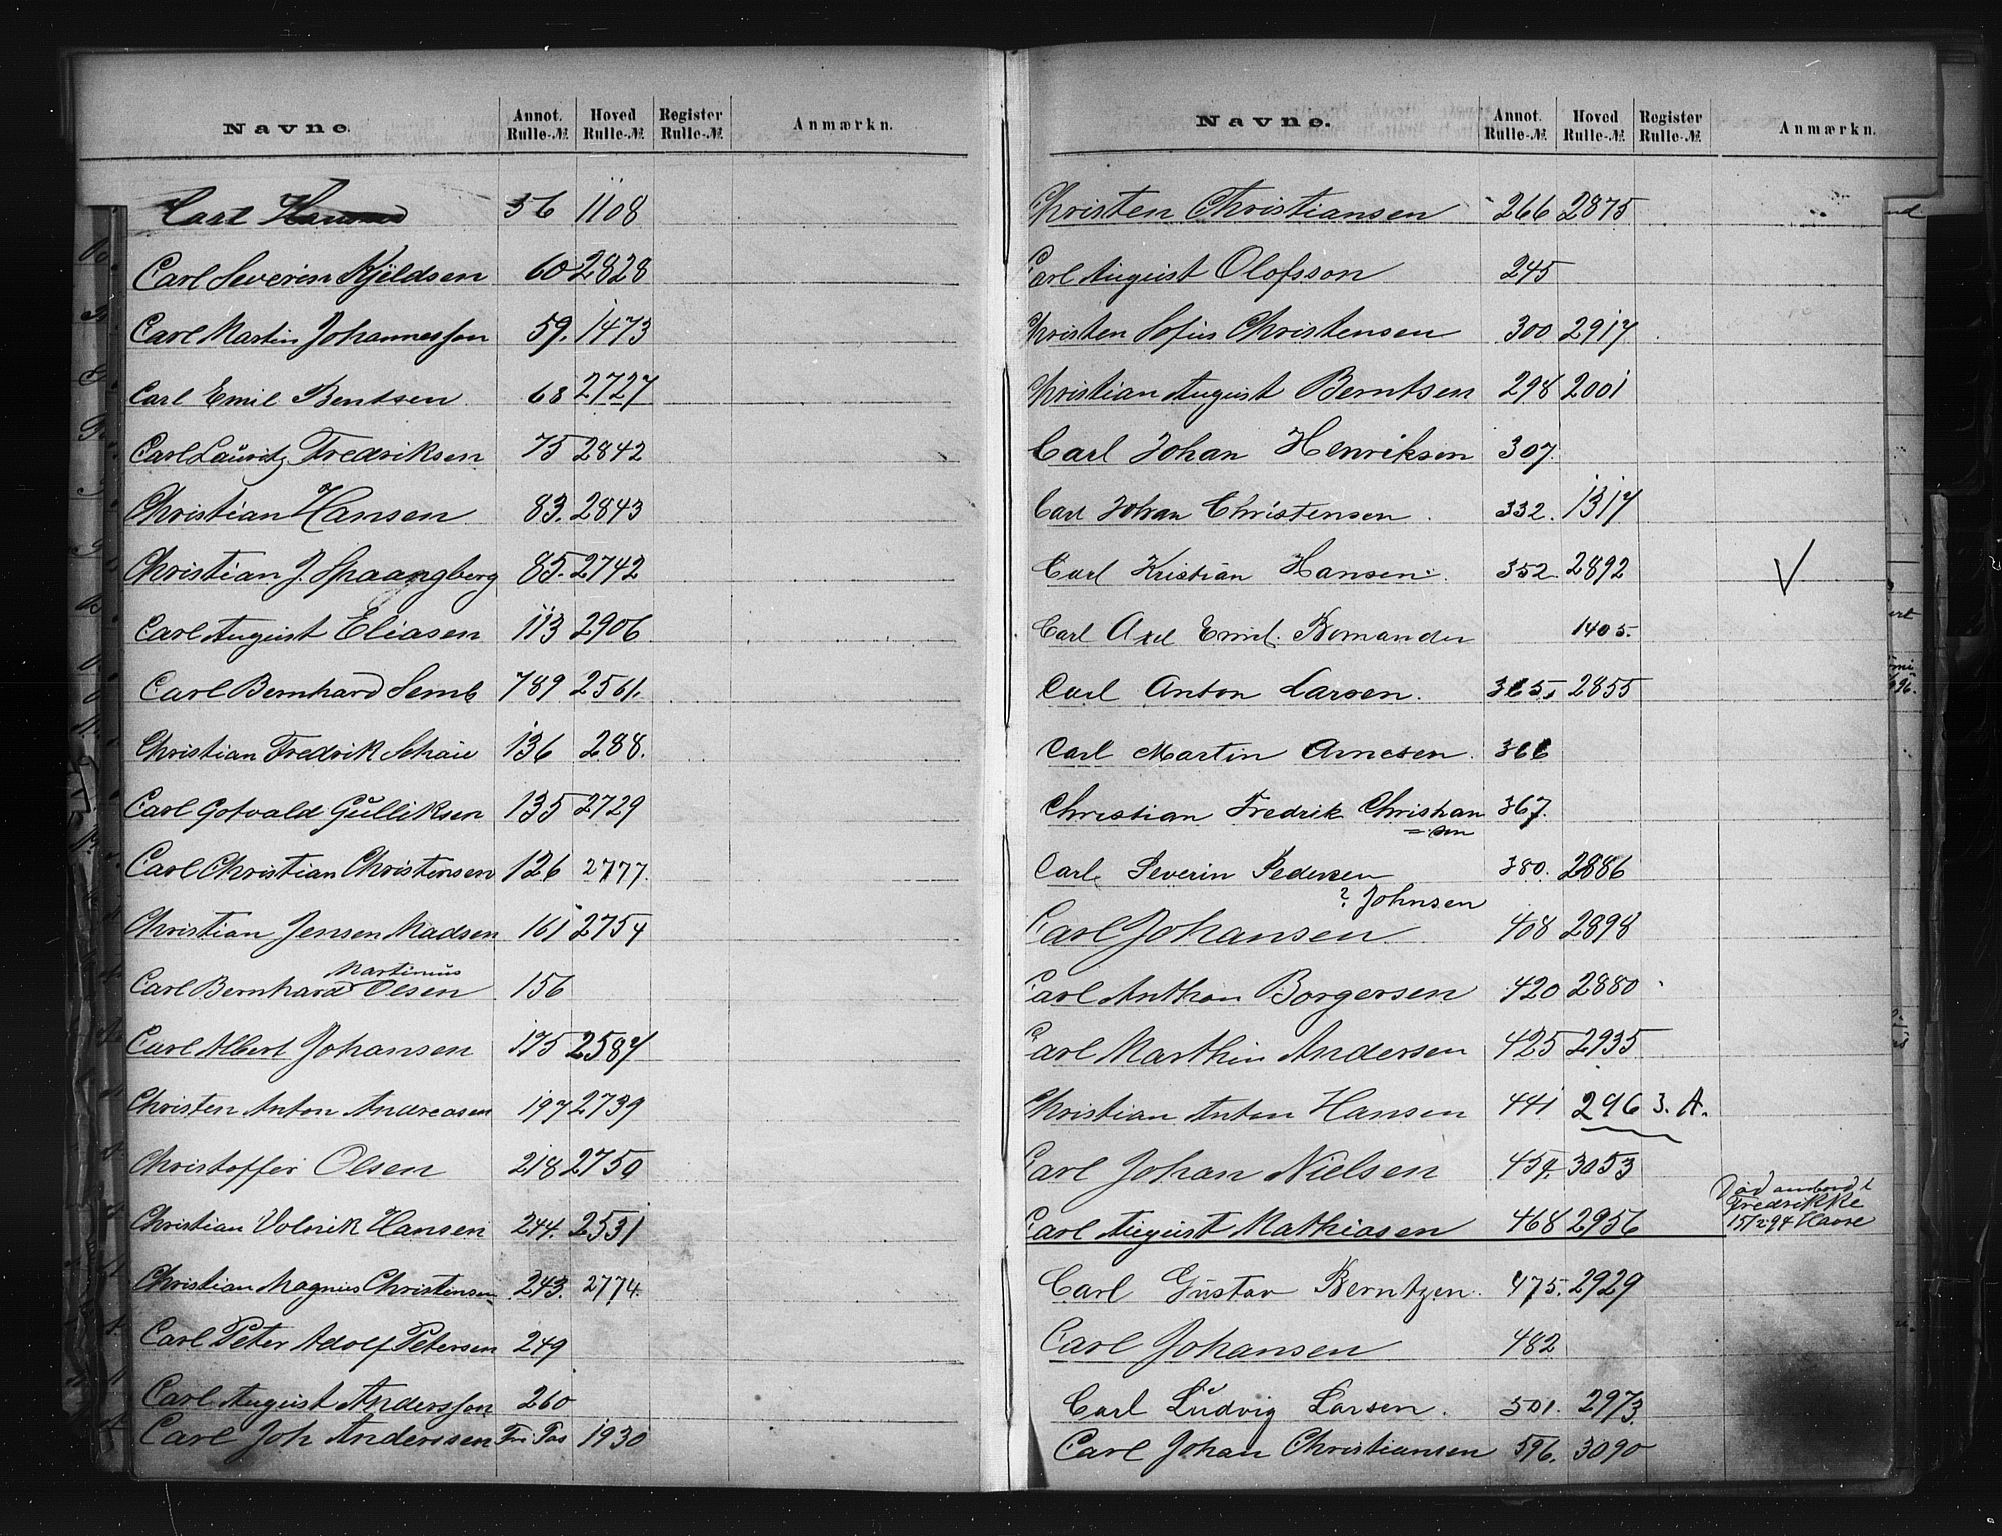 Navne. Annot. Rulle-№ Hoved Rulle-№ Register Rulle-№ Anmærkn.
Carl 56 1108
Carl Severin Kjeldsen 60 2828
Carl Martin Johannesson 59. 1473
Carl Emil Bendsen 68 2727
Carl Lauritz Fredriksen 75 2842
Christian Hansen 83. 2843
Christian J. Spaangberg 85. 2742
Carl August Eliasen 113 2906
Carl Bernhard Semb 789 2561.
Christian Fredrik 136 288.
Carl Gotvald Gulliksen 135 2729
Carl Christian Christensen 126 2777.
Christian Jensen Madsen 161 2754
Martinius
Carl Bernhard Olsen 156
Carl Albert Johansen 175 2587
Christen Anton Andreasen 197 2739
Christoffer Olsen 218 2750
Christian Volrik Hansen 244. 2531
Christian Magnus Christensen 243. 2774.
Carl Peter Adolf Petersen 249
Carl August Andersson 260
Carl Joh Anderssen Fri Pas 1930
Navne. Annot. Rulle-№ Hoved Rulle-№ Register Rulle-№ Anmærkn.
Christen Christiansen 266 2875
Carl August Olofsson 245
Christen Sofus Christensen 300 2917
Christian August Berntsen 298 2001
Carl Johan Henriksen 307.
Carl Johan Christensen. 332. 1317
Carl Kristian Hansen. 352. 2892
Carl Axel Emil. Bomander 1405.
Carl Anton Larsen. 365. 2855
Carl Martin Arnesen. 366
Christian Fredrik Christian 367.
=sen
Carl Severin Pedersen 380. 2886
? Johnsen
Carl Johansen 408 2898
Carl Anthon Borgersen 420 2880
Carl Marthin Andersen 425 2935
Christian Anton Hansen 441 296 3. A.
Carl Johan Nielsen 454. 3053
Død ombord i
Fredrikke
Carl August Mathiasen 468 2956 15/2 94 Havre
Carl Gustav Berntzen. 475. 2929
Carl Johansen 482
Carl Ludvig Larsen. 501. 2973.
Carl Johan Christiansen 596. 3090